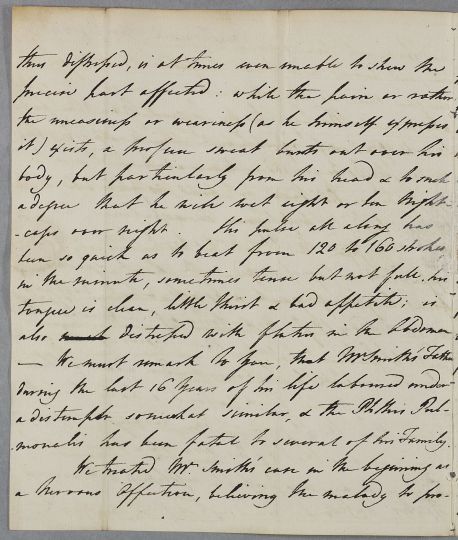 thus distressed, is at times even unable to shew the
precise part affected: while the pain or rather
the uneasiness or weariness (as he himself expresses
it) exists, a profuse sweat bursts out over his
body, but particularly from his head & to such
a degree that he will wet eight or ten Night-
-caps over night. His pulse all along has
been so quick as to beat from 120 to 160 strokes
in the minute, sometimes tense but not full, his
tongue is clean, little thirst & bad appetite; is
also much distressed with flatus in the Abdomen
— We must remark to you, that Mr Smith's Father
during the last 16 Years of his life laboured under
a distemper somewhat similar, & the Phthisis Pul-
-monalis has been fatal to several of his Family.
We treated Mr Smith's case in the beginning as
a Nervous Affection, believing the malady to pro-